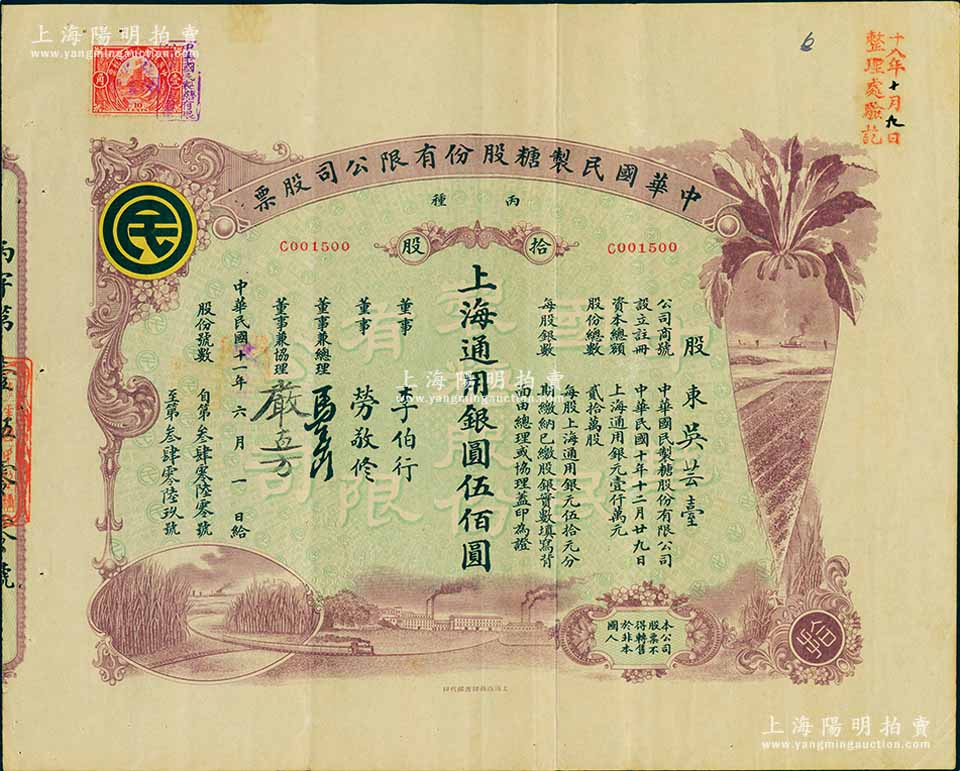 上海陽明拍賣
www.yangmingauction.com
十八年十月九日
整理處驗訖
中華國民製糖股份有限公司股票
丙種
拾股
C001500
C001500
股東吳芸臺
公司商號 中華國民製糖股份有限公司
設立註冊 中華民國十年十二月廿九日
資本總額 上海通用銀元壹仟萬元
股份總數 貳拾萬股
每股銀數 每股上海通用銀元伍拾元分
期繳納已繳股銀實數填寫背
面由總理或協理蓋印為證
上海通用銀圓伍佰圓
董事 李伯行
董事 勞敬修
董事兼總理 馬玉山
董事兼協理
中華民國十一年六月一日給
股份號數 自第叁肆零陸零號
至第叁肆零陸玖號
本公司
股票不
得轉售
於非本
國人
拾
民
上海陽明拍賣
www.yangmingauction.com
上海陽明拍賣
www.yangmingauction.com